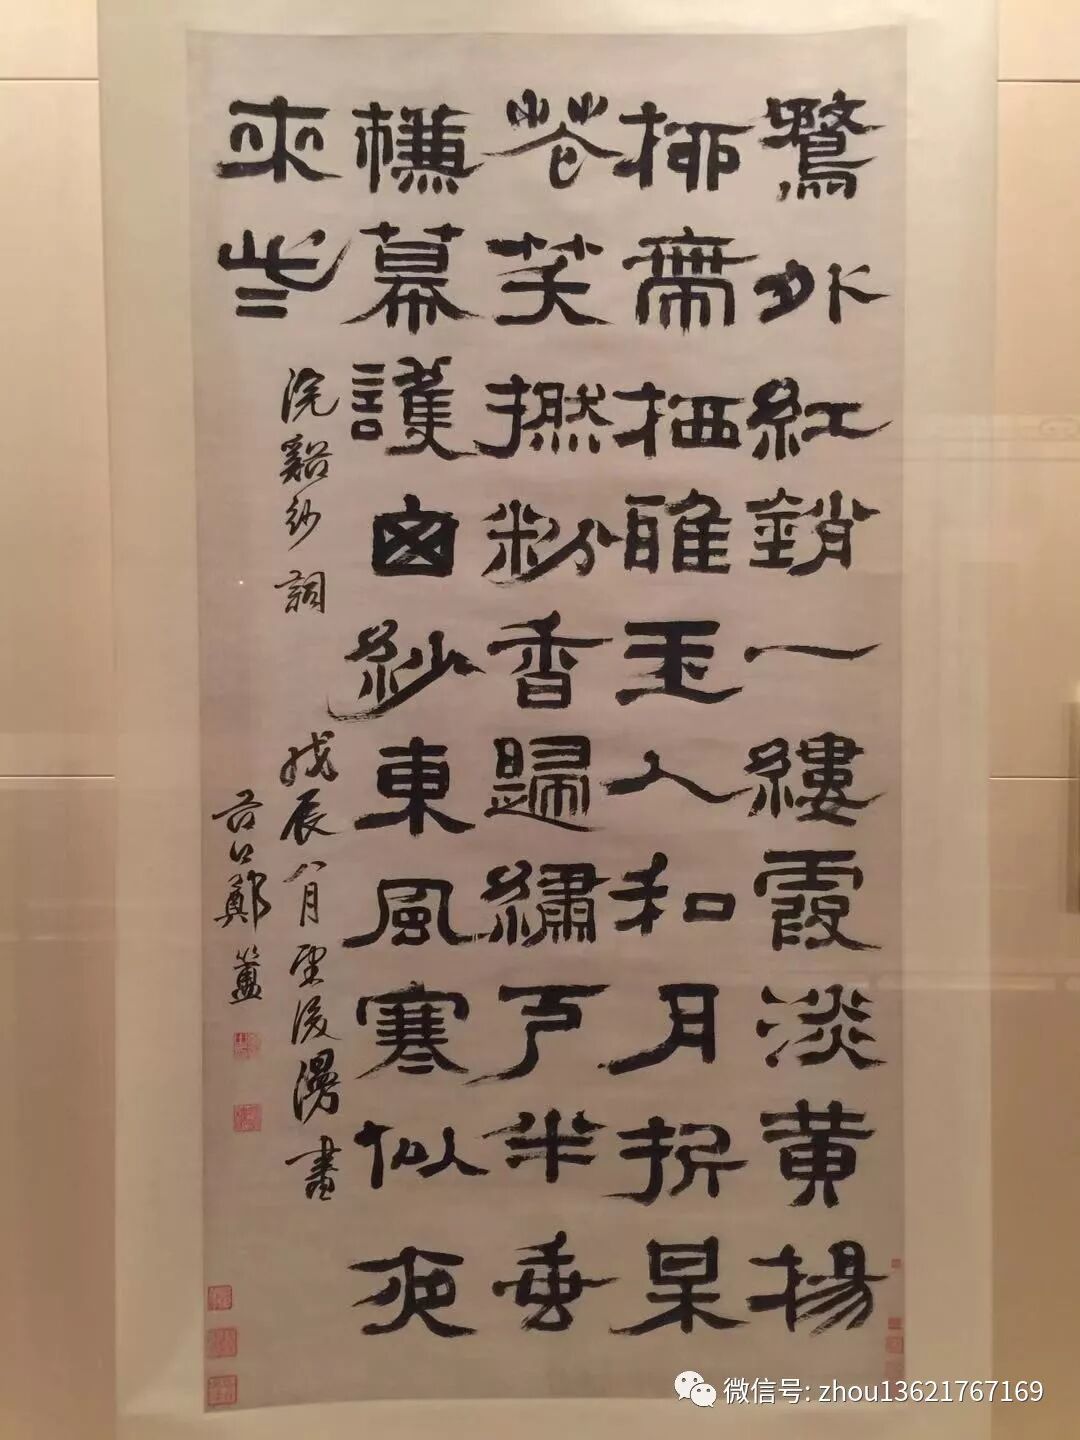 鶩外紅銷一縷霞淡黃揚
柳帶栖鵶玉人和月折某
華笑撚粉香歸繡戶半垂
櫵幕護囪紗東風寒似夜
來些
浣谿紗詞 戊辰八月雨後漫書
谷口鄭簠
微信号: zhou13621767169